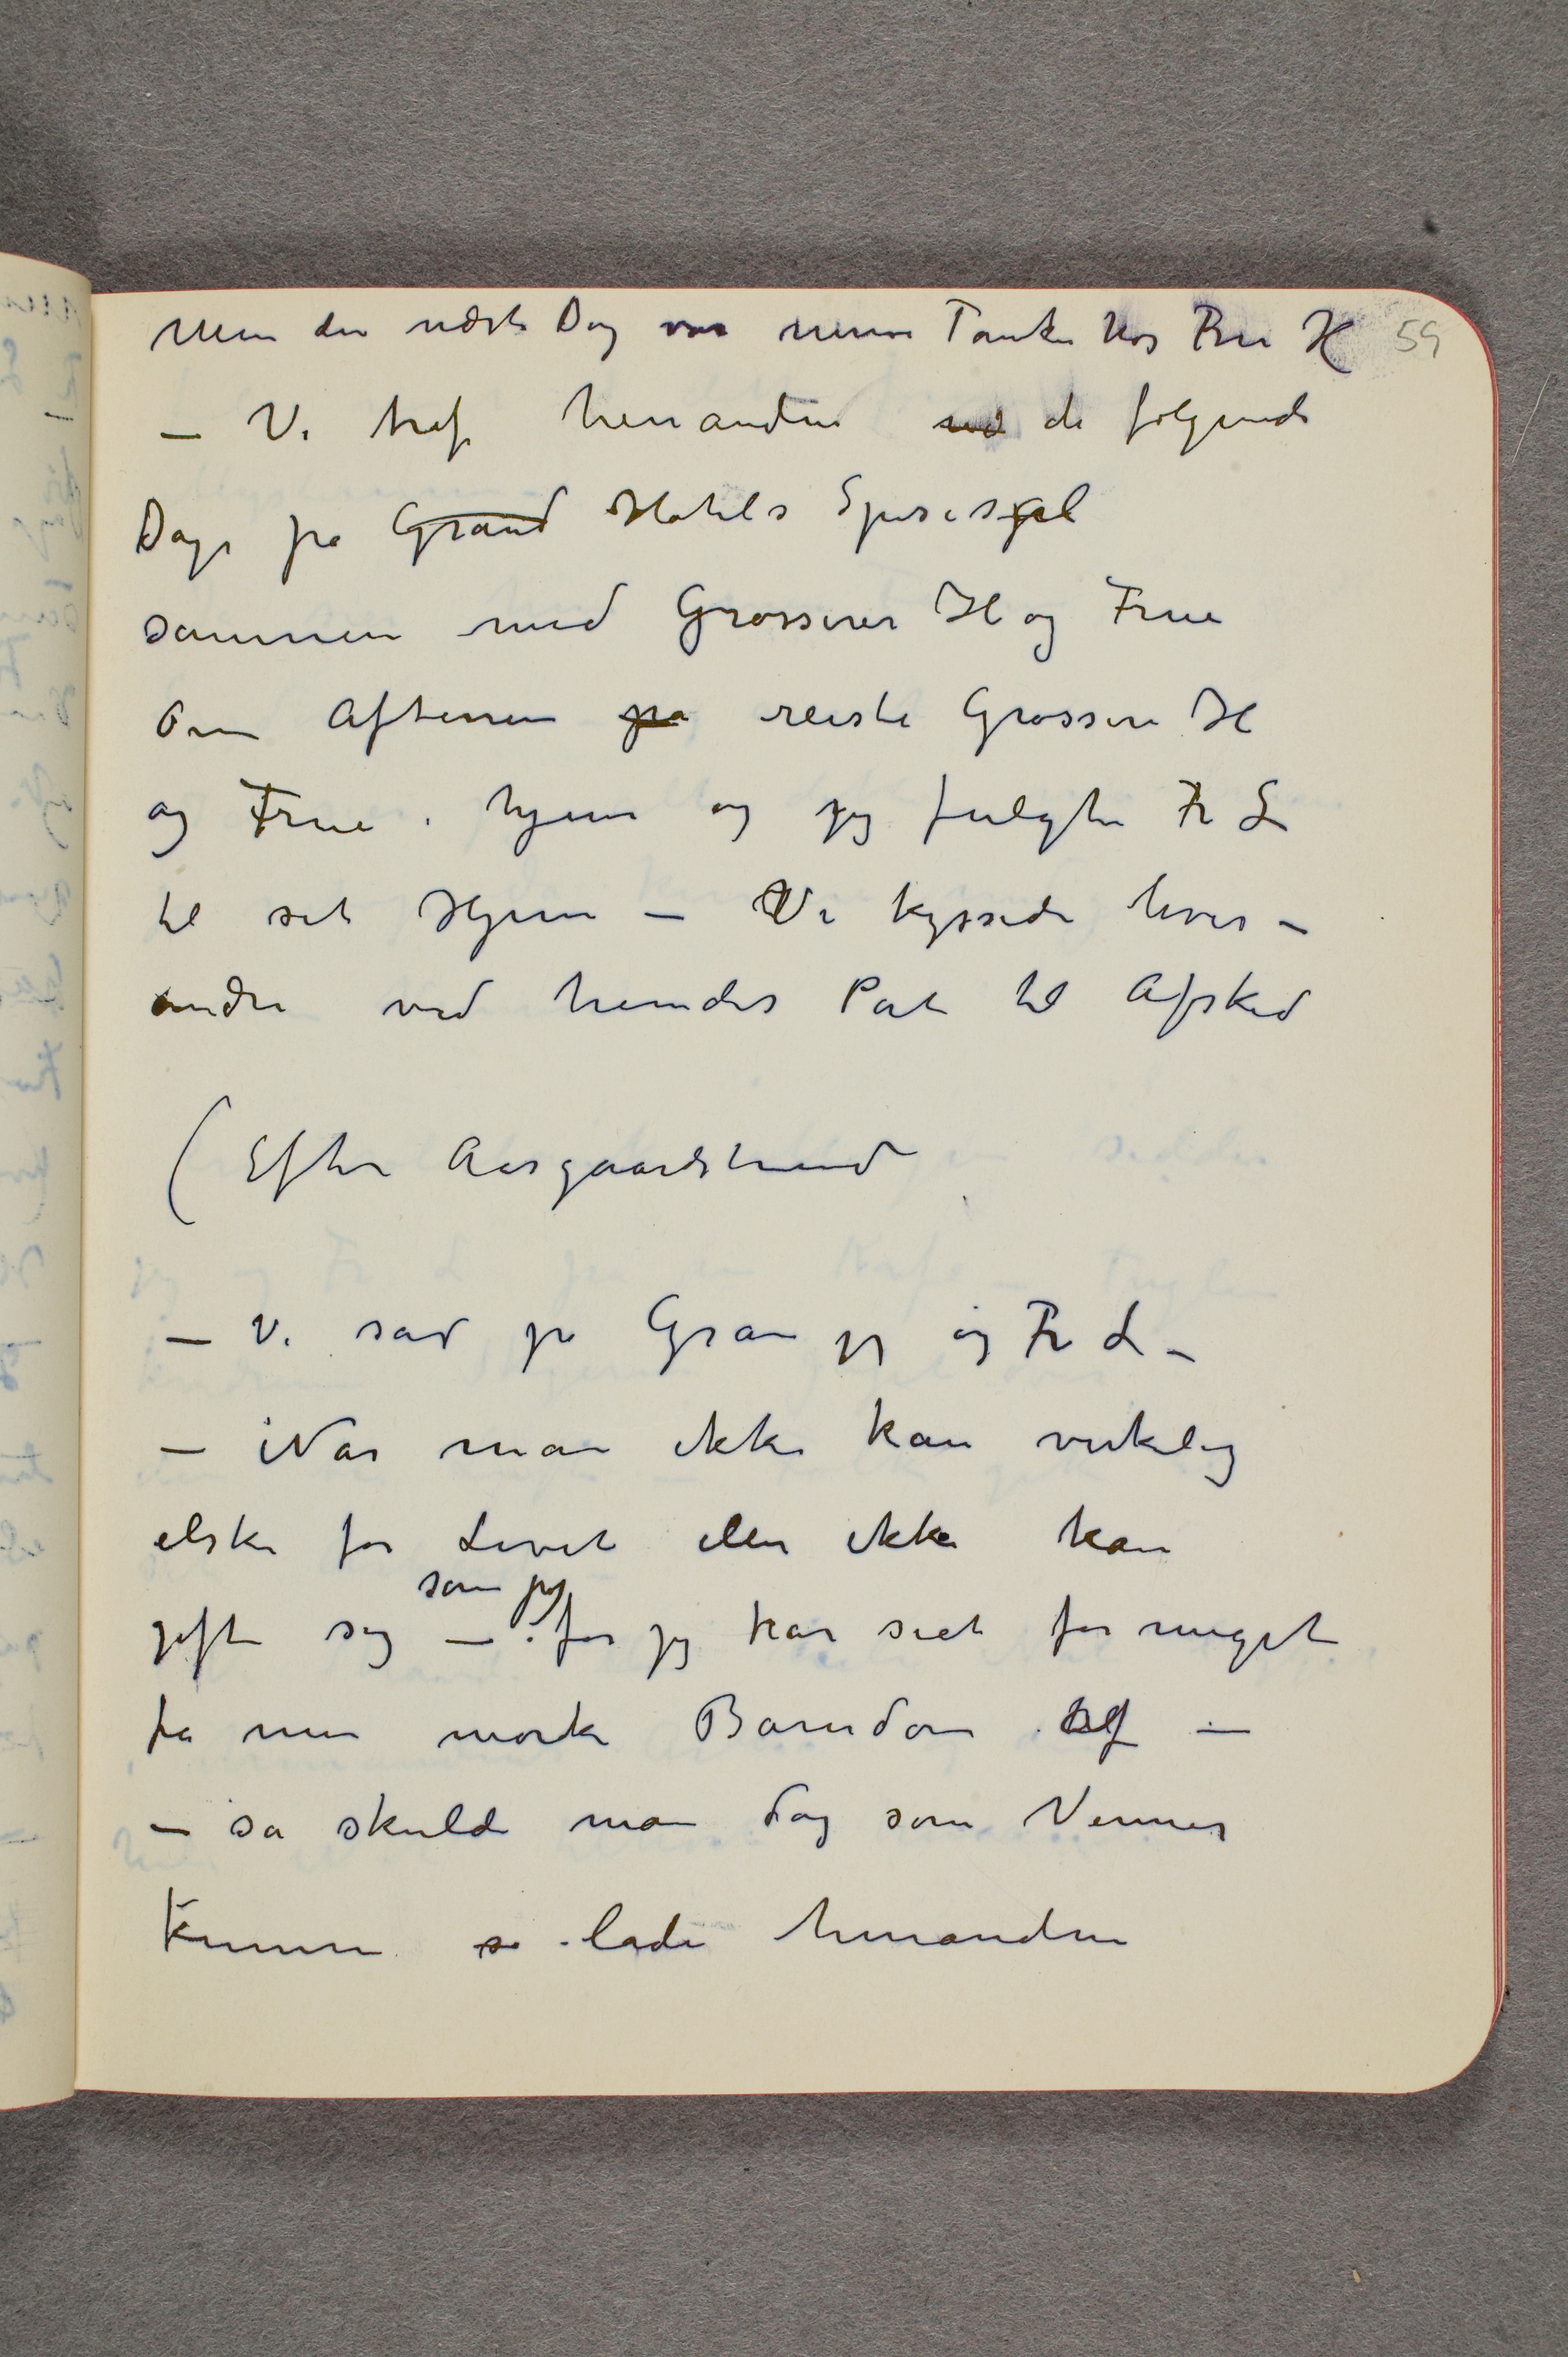 Men den næste Dag var mine Tanker hos Fru H 59
– Vi traf hinanden ved de følgende
Dage på Grand Hotels Spisesal
sammen med Grosserer H og Frue
Om Aftenen på reiste Grosserer H
og Frue hjem og jeg fulgte Fr L
til sit Hjem – Vi kyssede hver-
andre ved hendes Port til Afsked
(Efter Aasgaardstrand
– Vi sad på Gran jeg og Fr L –
– Når man ikke kan virkelig
elske for Livet eller ikke kan
som jeg
gifte sig – for jeg har seet for meget
fra min mørke Barndom af –
– så skulde man dog som Venner
kunne så lade hinanden